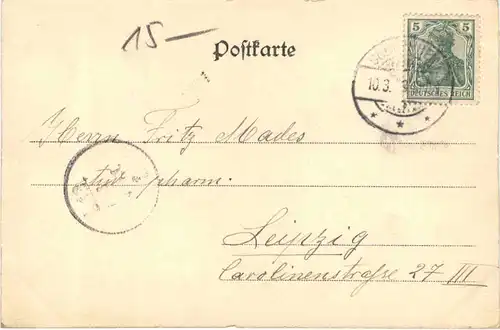 15 —
Postkarte
5 5
DEUTSCHES REICH
10.3.
Herrn Fritz Mades
stud pharm.
Leipzig
Carolinenstraße 27 III